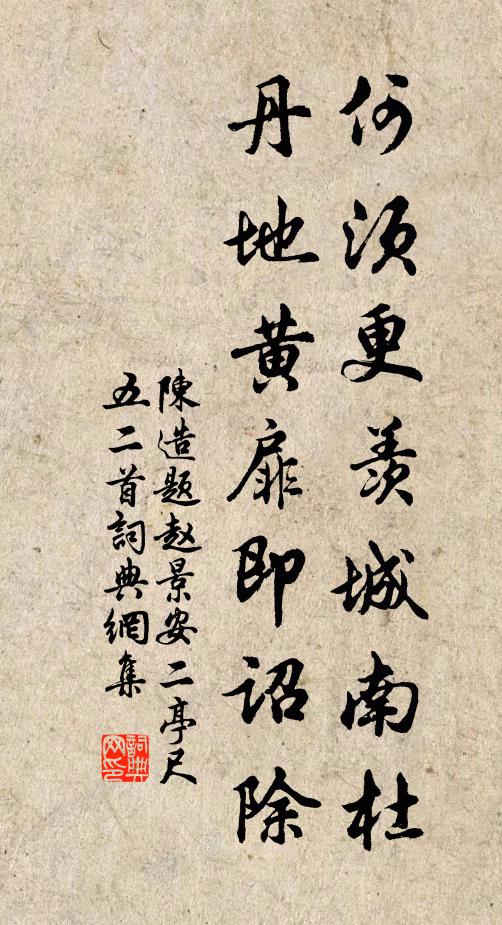 何須更羨城南杜
丹地黄扉即詔除
陳造題赵景安二亭尺
五二首詞典網集
詞典
网印